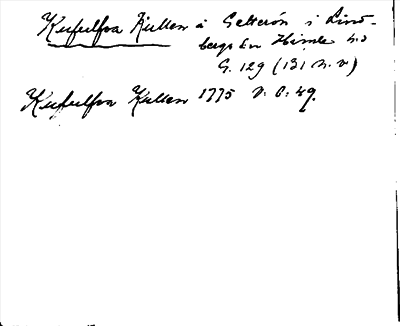 Kufulfva Kullen å Gelterön i Lind-
bergs sn Himle hd
G. 129 (131 n. v)
Kufulfva Kullen 1775 V. O: 49.